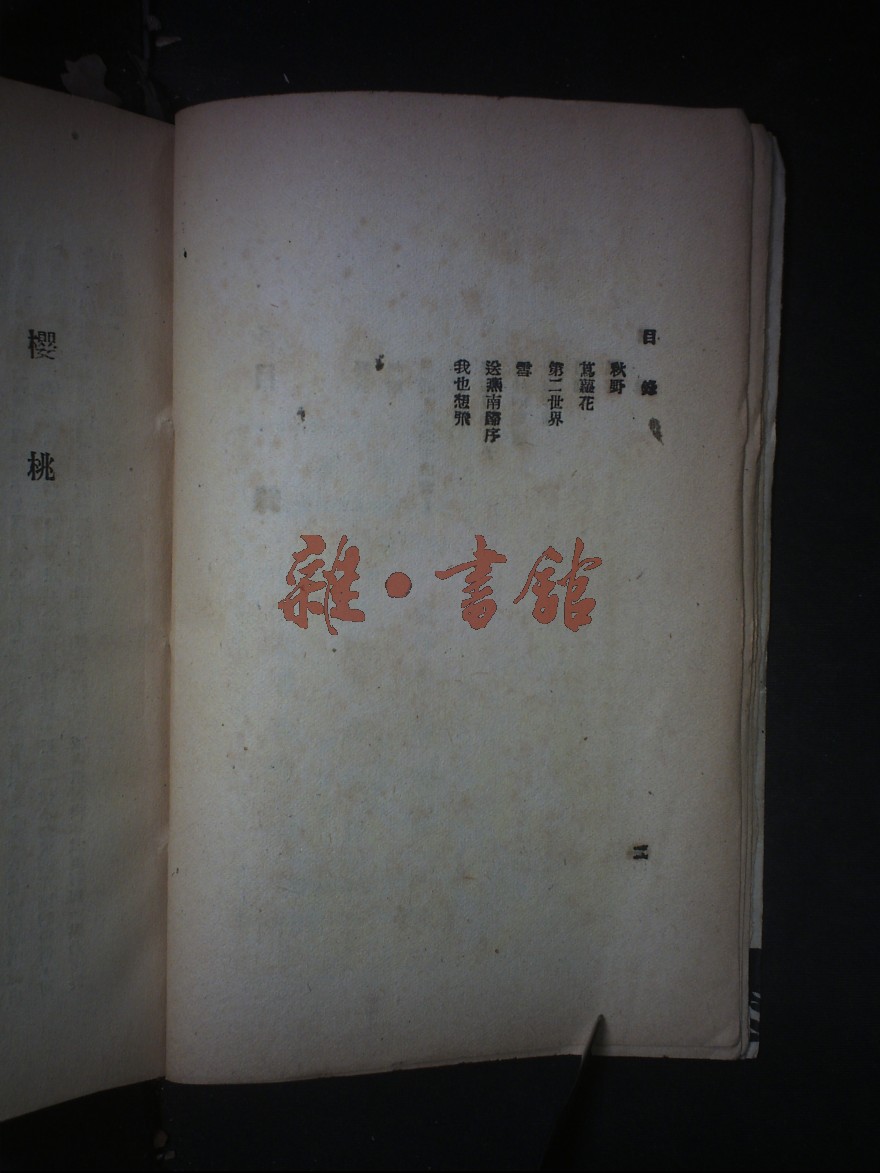 目錄
秋野
蔦蘿花
第二世界
雪
送燕南歸序
我也想飛
二
櫻桃
雜·書館